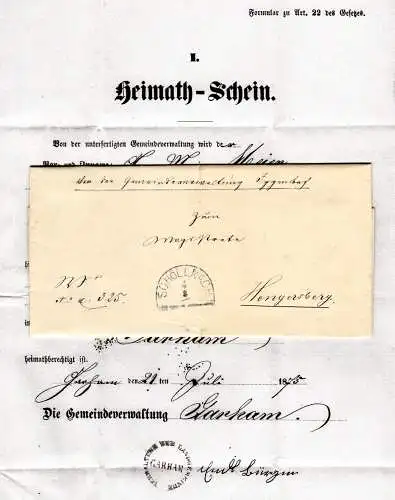 Formular zu Art. 22 des Gesetzes.
I.
Heimath-Schein.
Von der unterfertigten Gemeindeverwaltung wird
Vor- und Zuname:
Von der Gemeindeverwaltung Iggensbach
Zum
Magistrate
SCHÖLLNACH
No. a. 325.
Hengersberg.
Garham
heimathberechtigt ist.
Garham den 21 ten Juli 1875
Die Gemeindeverwaltung Garham.
VERWALTUNG DER LANDGEMEINDE
GARHAM